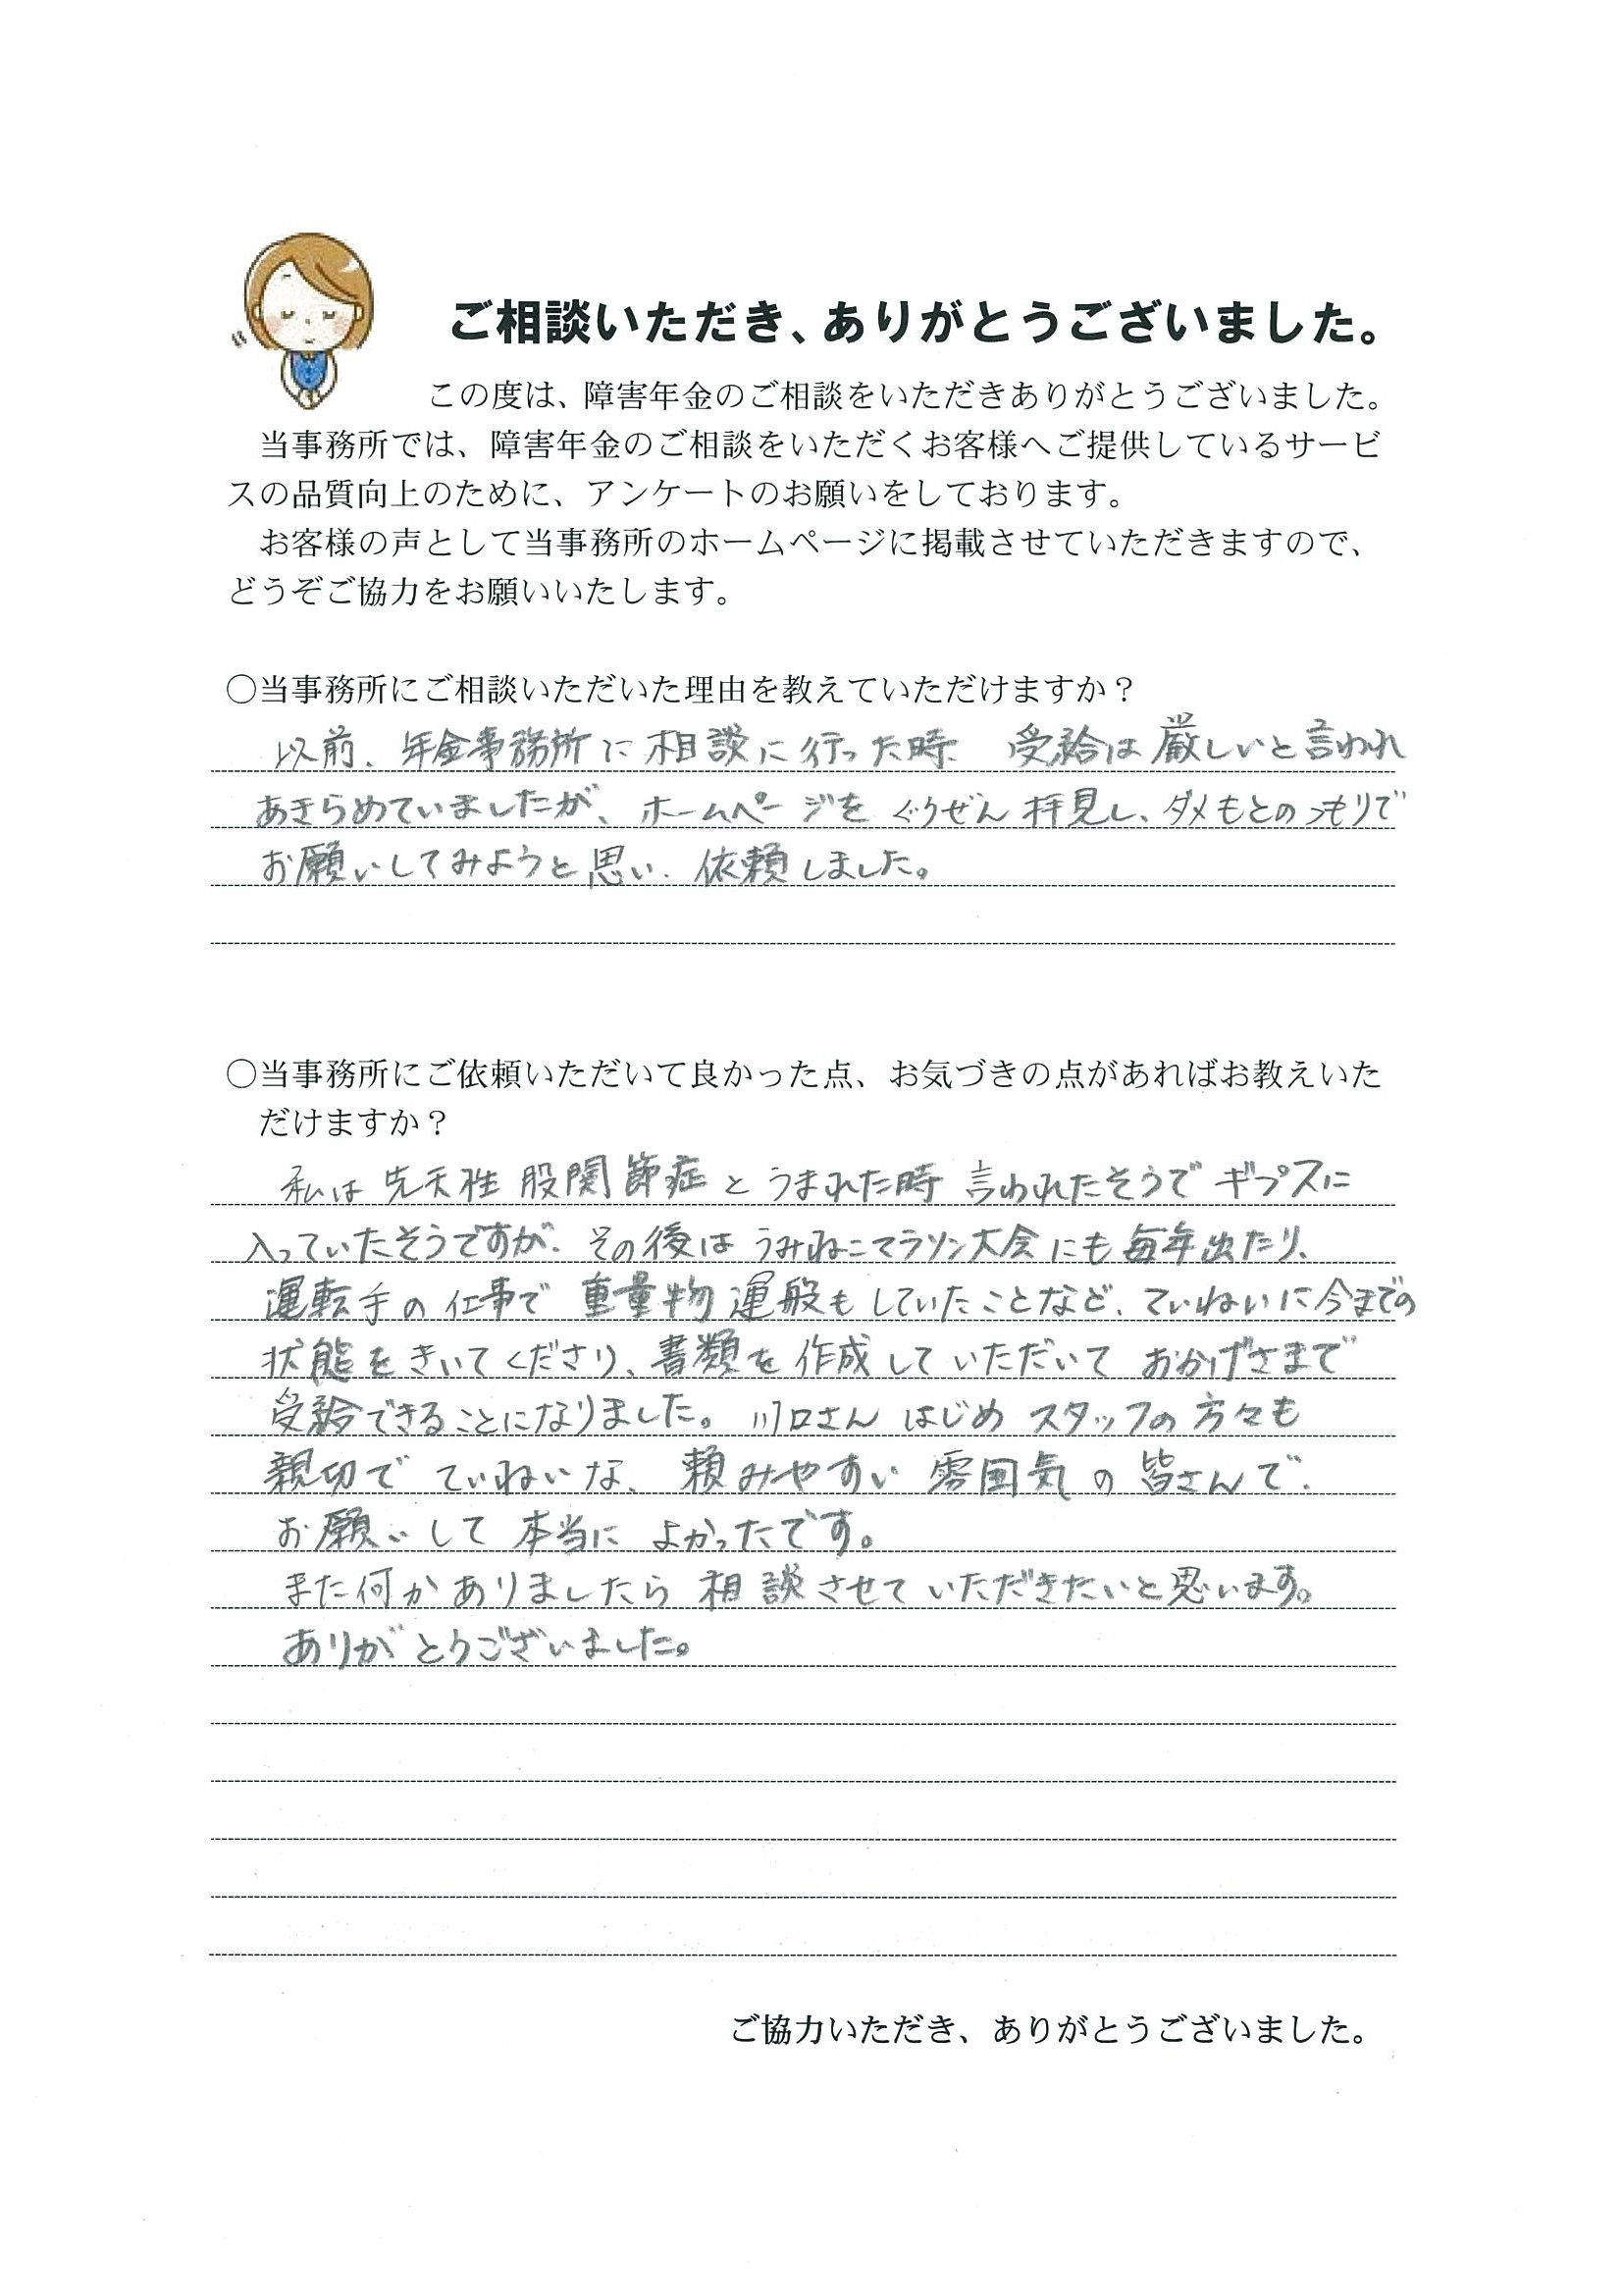 ご相談いただき、ありがとうございました。
この度は、障害年金のご相談をいただきありがとうございました。
当事務所では、障害年金のご相談をいただくお客様へご提供しているサービ
スの品質向上のために、アンケートのお願いをしております。
お客様の声として当事務所のホームページに掲載させていただきますので、
どうぞご協力をお願いいたします。
〇当事務所にご相談いただいた理由を教えていただけますか？
以前、年金事務所に相談に行った時、受給は厳しいと言われ
あきらめていましたが、ホームページをぐうぜん拝見し、ダメもとのつもりで
お願いしてみようと思い、依頼しました。
〇当事務所にご依頼いただいて良かった点、お気づきの点があればお教えいた
だけますか？
私は先天性股関節症とうまれた時言われたそうでギプスに
入っていたそうですが、その後はうみねこマラソン大会にも毎年出たり、
運転手の仕事で重量物運般もしていたことなど、ていねいに今までの
状態をきいてくださり、書類を作成していただいておかげさまで
受給できることになりました。川口さんはじめスタッフの方々も
親切でていねいな、頼みやすい雰囲気の皆さんで、
お願いして本当によかったです。
また何かありましたら相談させていただきたいと思います。
ありがとうございました。
ご協力いただき、ありがとうございました。